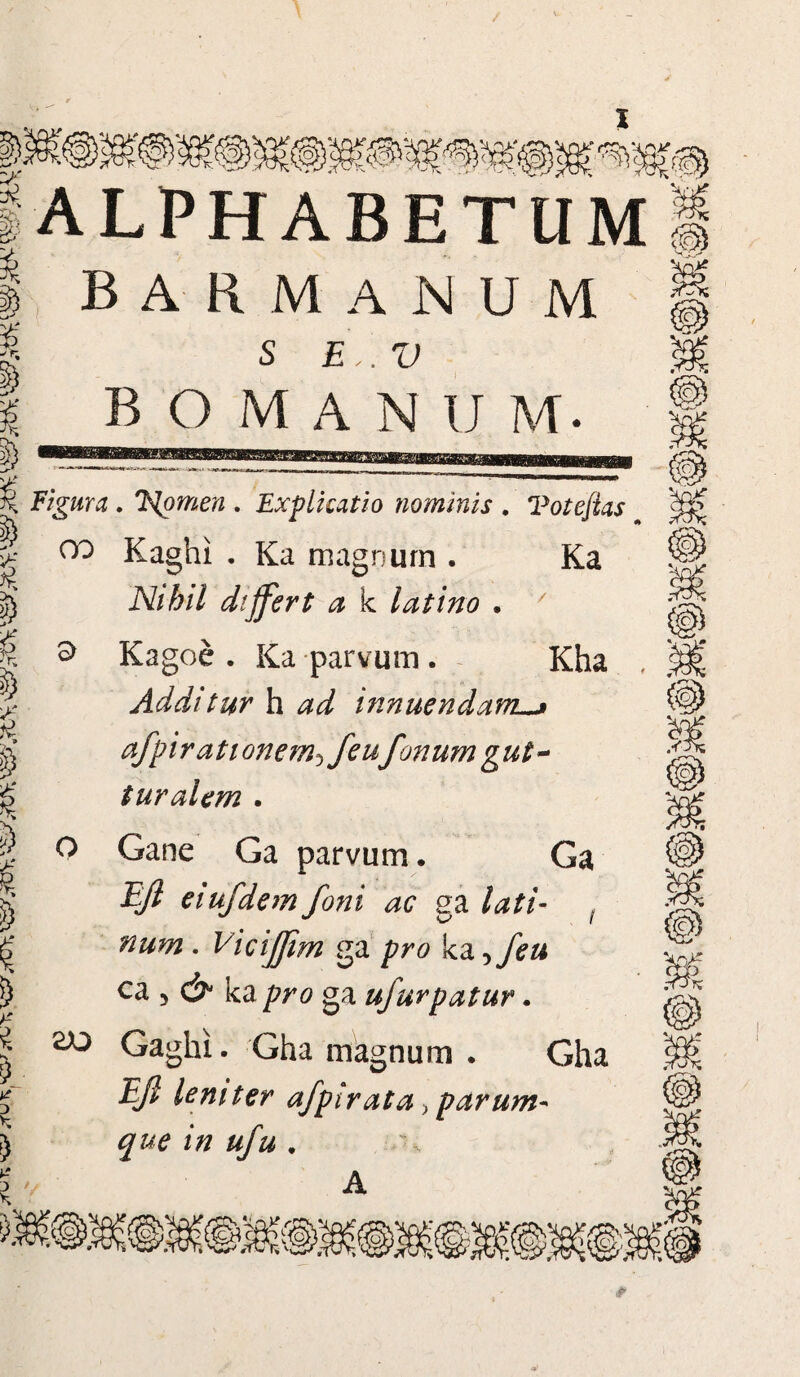 1
ALPHABETUM
BARMANUM
SEV
BOMANUM.
Figura . Nomen . Explicatio nominis . Poteſtas
က Kaghì . Ka magnum . Ka
Nihil differt a k latino .
ခ Kagoè . Ka parvum . Kha
Additur h ad innuendam
aſpirationem, ſeu ſonum gut-
turalem .
ဂ Gane Ga parvum . Ga
Eſt eiuſdem ſoni ac ga lati-
num . Viciſſim ga pro ka, ſeu
ca, & ka pro ga uſurpatur .
ဃ Gaghì . Gha magnum . Gha
Eſt leniter aſpirata, parum-
que in uſu .
A